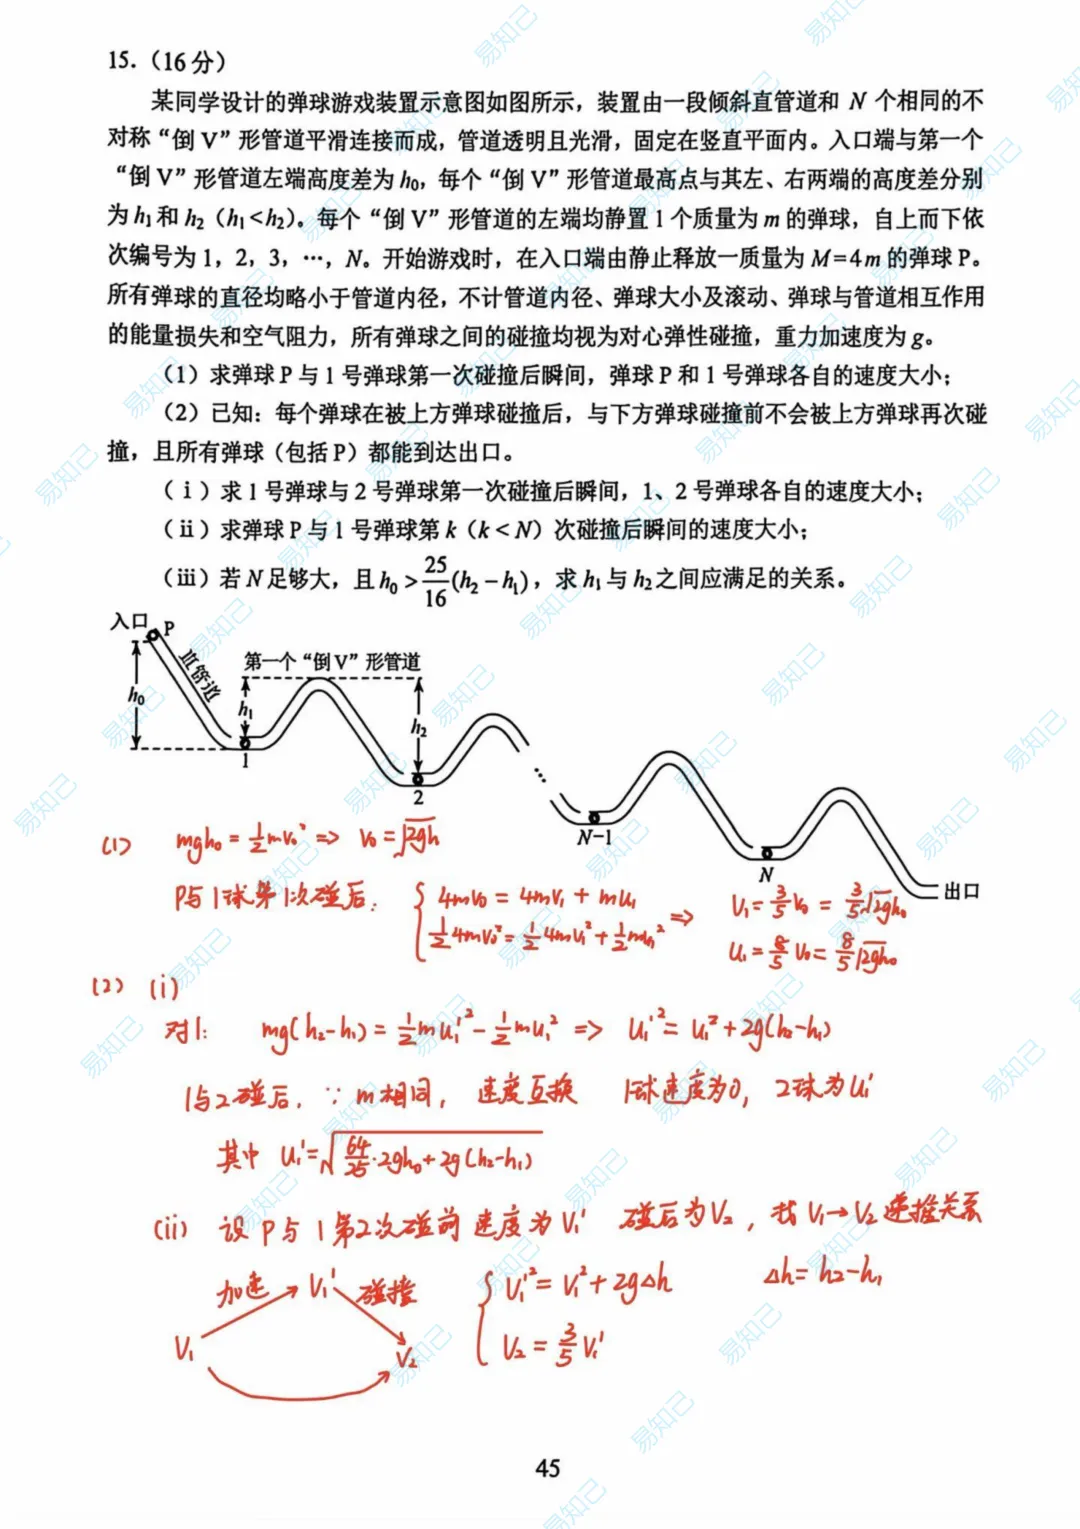 15.（16分）
某同学设计的弹球游戏装置示意图如图所示，装置由一段倾斜直管道和 N 个相同的不
对称“倒 V”形管道平滑连接而成，管道透明且光滑，固定在竖直平面内。入口端与第一个
“倒 V”形管道左端高度差为 h₀，每个“倒 V”形管道最高点与其左、右两端的高度差分别
为 h₁ 和 h₂（h₁<h₂）。每个“倒 V”形管道的左端均静置 1 个质量为 m 的弹球，自上而下依
次编号为 1，2，3，…，N。开始游戏时，在入口端由静止释放一质量为 M=4m 的弹球 P。
所有弹球的直径均略小于管道内径，不计管道内径、弹球大小及滚动、弹球与管道相互作用
的能量损失和空气阻力，所有弹球之间的碰撞均视为对心弹性碰撞，重力加速度为 g。
（1）求弹球 P 与 1 号弹球第一次碰撞后瞬间，弹球 P 和 1 号弹球各自的速度大小；
（2）已知：每个弹球在被上方弹球碰撞后，与下方弹球碰撞前不会被上方弹球再次碰
撞，且所有弹球（包括 P）都能到达出口。
（ⅰ）求 1 号弹球与 2 号弹球第一次碰撞后瞬间，1、2 号弹球各自的速度大小；
（ⅱ）求弹球 P 与 1 号弹球第 k（k<N）次碰撞后瞬间的速度大小；
（ⅲ）若 N 足够大，且 h₀>25/16(h₂-h₁)，求 h₁ 与 h₂ 之间应满足的关系。
入口 P
直管道
第一个“倒 V”形管道
h₀
h₁
h₂
1
2
N-1
N
出口
(1) mgh₀=½mv₀² ⇒ v₀=√2gh
P与1球第1次碰后: { 4mv₀=4mv₁+mu₁
½4mv₀²=½4mv₁²+½mu₁² ⇒ v₁=3/5v₀=3/5√2gh₀
u₁=8/5v₀=8/5√2gh₀
(2) (i)
对1: mg(h₂-h₁)=½mu₁'²-½mu₁² ⇒ u₁'²=u₁²+2g(h₂-h₁)
1与2碰后, ∵m相同, 速度互换 1球速度为0, 2球为u₁'
其中 u₁'=√64/25·2gh₀+2g(h₂-h₁)
(ii) 设P与1第2次碰前速度为v₁' 碰后为v₂, 找v₁→v₂递推关系
加速 v₁' 碰撞
v₁ v₂
{ v₁'²=v₁²+2gΔh Δh=h₂-h₁
v₂=3/5v₁'
45
易知己